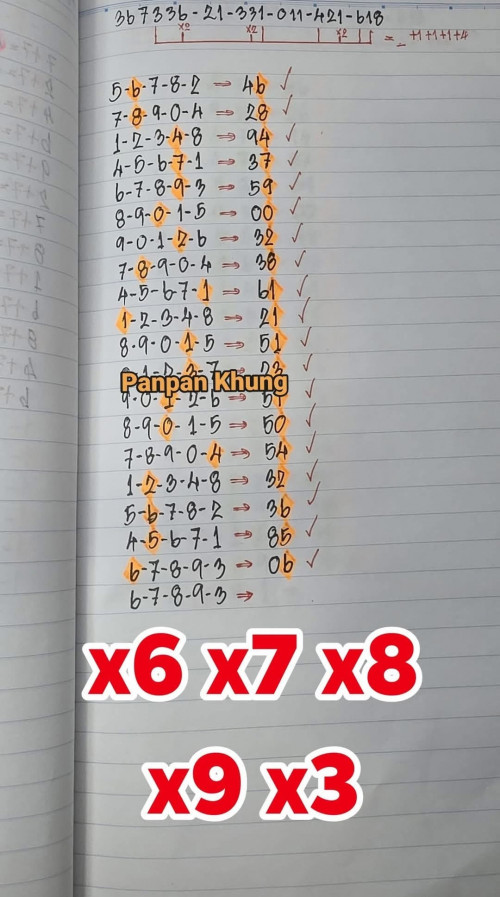 367336-21-331-011-421-618
x2 x2 = +1+1+1+4
5-6-7-8-2 → 46 ✓
7-8-9-0-4 ⇒ 28 ✓
1-2-3-4-8 ⇒ 94 ✓
4-5-6-7-1 ⇒ 37 ✓
6-7-8-9-3 ⇒ 59 ✓
8-9-0-1-5 ⇒ 00 ✓
9-0-1-2-6 ⇒ 32 ✓
7-8-9-0-4 ⇒ 38 ✓
4-5-6-7-1 ⇒ 61 ✓
1-2-3-4-8 ⇒ 21 ✓
8-9-0-1-5 ⇒ 51 ✓
Panpan Khung
9-0-1-2-6 ⇒ 51 ✓
8-9-0-1-5 ⇒ 50 ✓
7-8-9-0-4 ⇒ 54 ✓
1-2-3-4-8 ⇒ 32 ✓
5-6-7-8-2 ⇒ 36 ✓
4-5-6-7-1 ⇒ 85 ✓
6-7-8-9-3 ⇒ 06 ✓
6-7-8-9-3 ⇒
x6 x7 x8
x9 x3